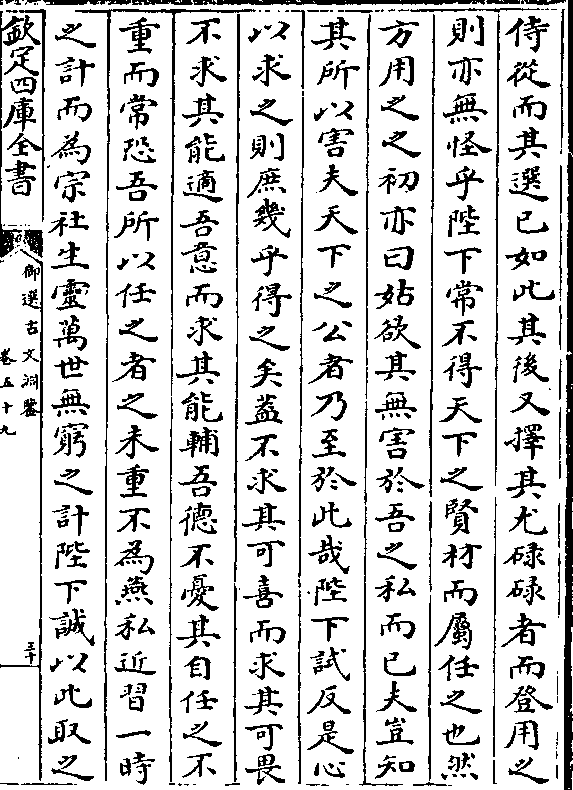 侍從而其選已如此其後又擇其尤碌碌者而登用之
則亦無怪乎陛下常不得天下之賢材而屬任之也然
方用之之初亦曰姑欲其無害於吾之私而已夫豈知
其所以害夫天下之公者乃至於此哉陛下試反是心
以求之則庶幾乎得之矣葢不求其可喜而求其可畏
不求其能適吾意而求其能輔吾德不憂其自任之不
重而常恐吾所以任之者之未重不為燕私近習一時
之計而為宗社生靈萬世無窮之計陛下誠以此取之
欽定四庫全書
御選古文淵鑒
卷五十九
三十